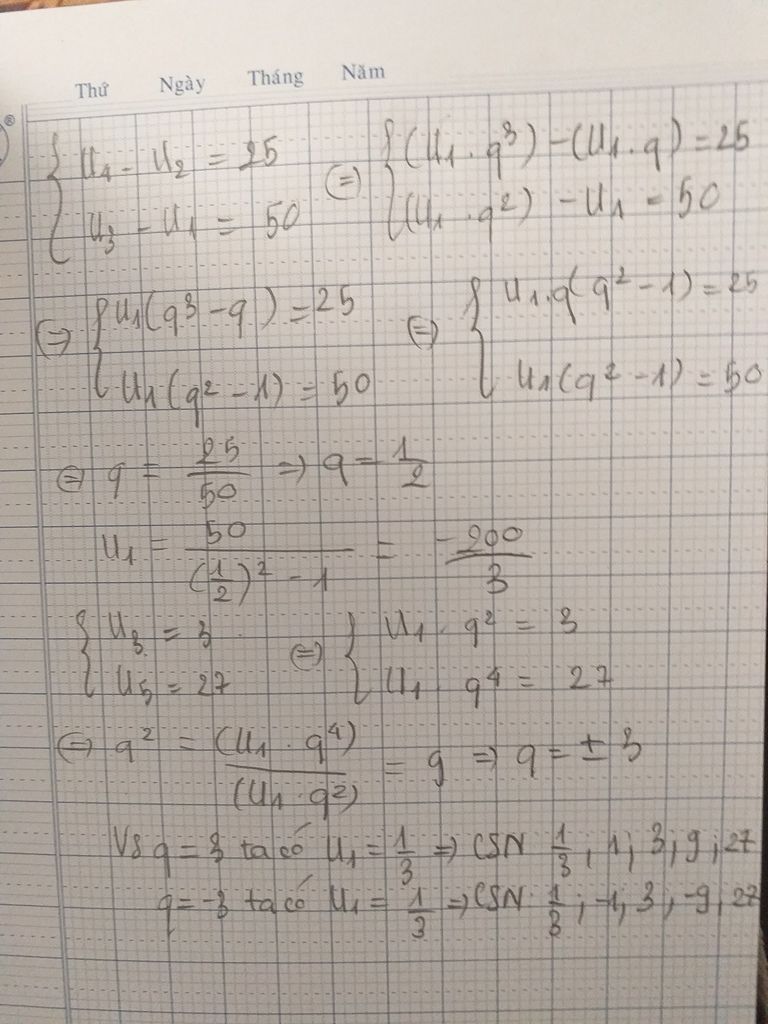 Thứ Ngày Tháng Năm
{ u4 - u2 = 25 (=) { (u1 . q³) - (u1 . q) = 25
{ u3 - u1 = 50 { (u1 . q²) - u1 = 50
(=) { u1(q³ - q) = 25 (=) { u1.q(q² - 1) = 25
{ u1(q² - 1) = 50 { u1(q² - 1) = 50
(=) q = 25/50 => q = 1/2
u1 = 50/((1/2)² - 1) = -200/3
{ u3 = 3 (=) { u1 . q² = 3
{ u5 = 27 { u1 q⁴ = 27
(=) q² = (u1 . q⁴)/(u1 . q²) = 9 => q = ± 3
Vs q = 3 ta có u1 = 1/3 => CSN 1/3 ; 1 ; 3 ; 9 ; 27
q = -3 ta có u1 = 1/3 => CSN 1/3 ; -1 ; 3 ; -9 ; 27